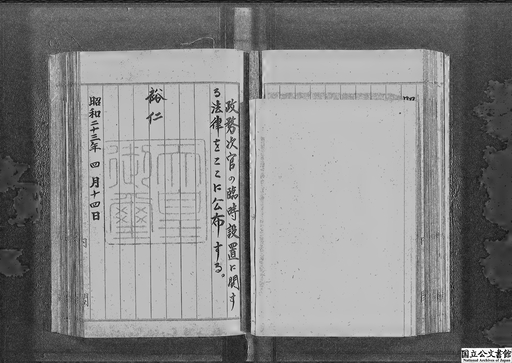 政務次官の臨時設置に関す
る法律をここに公布する。
裕仁
天皇
御璽
昭和二十三年四月十四日
国立公文書館
National Archives of Japan